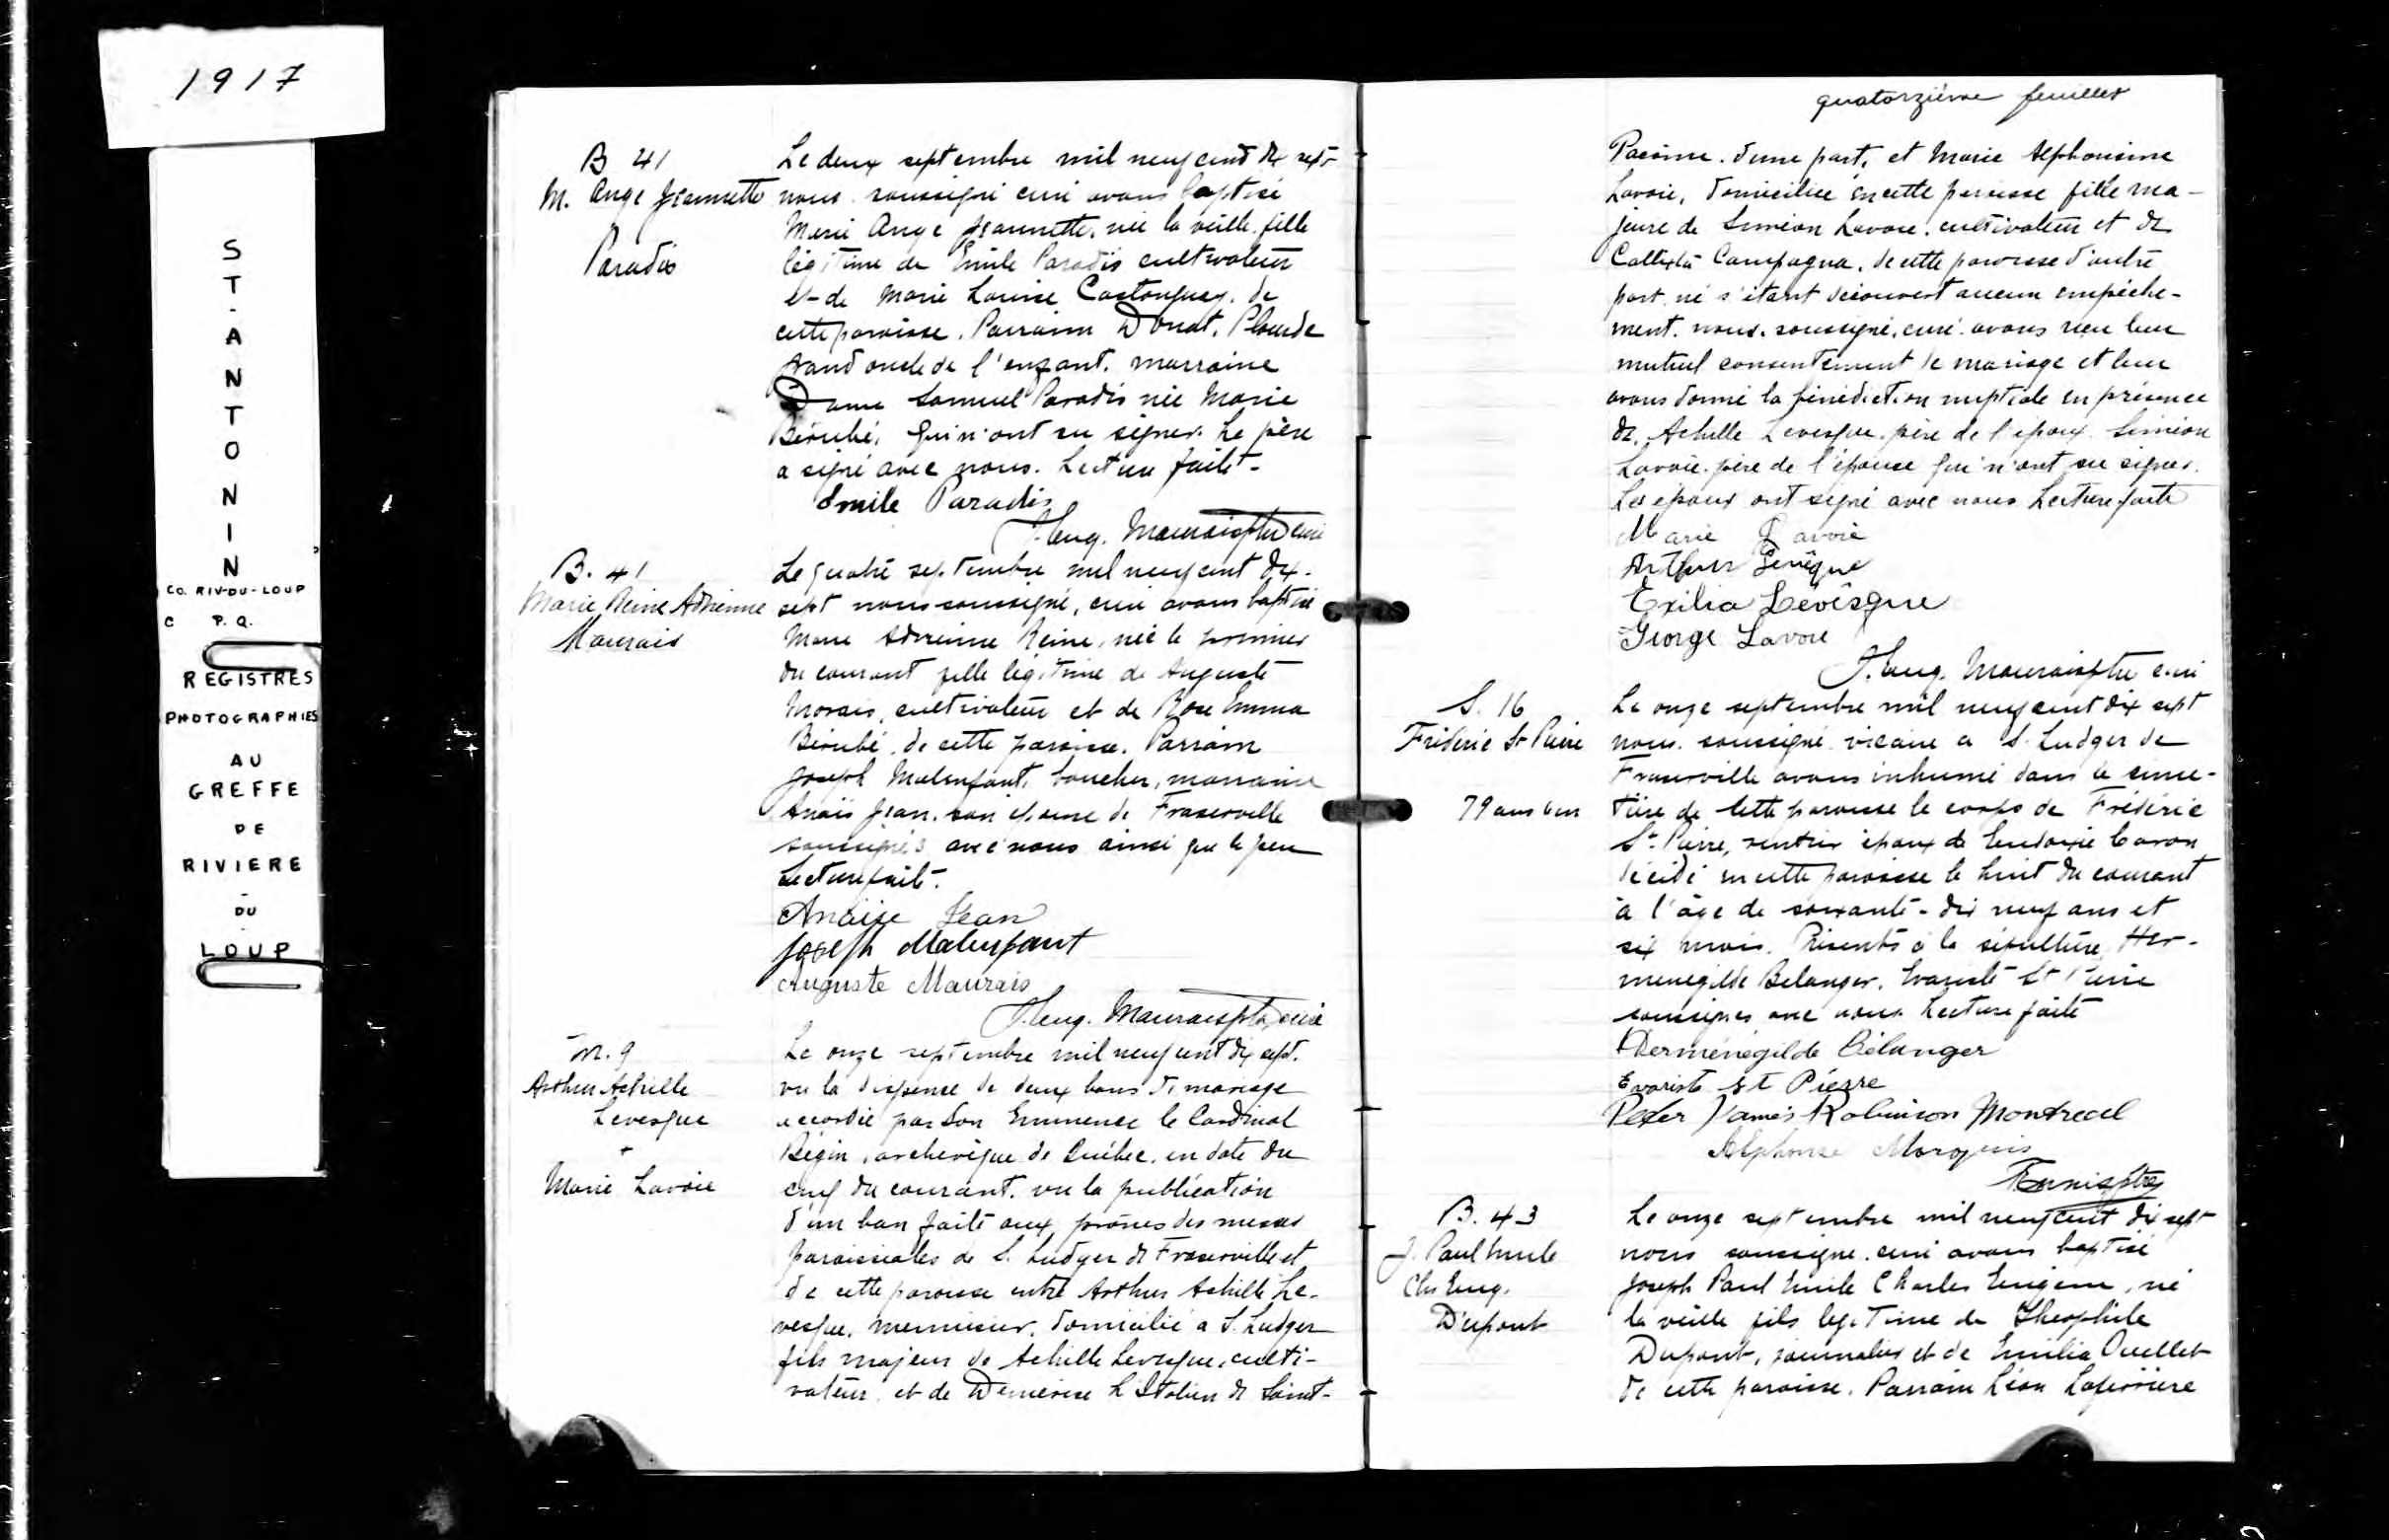 1917
ST-ANTONIN
CO. RIV-DU-LOUP
C P.Q.
REGISTRES
PHOTOGRAPHIES
AU
GREFFE
DE
RIVIERE
-
DU
-
LOUP
B 41
M. Ange Jeannette
Paradis
Le deux septembre mil neuf cent dix sept
nous soussigné curé avons baptisé
Marie Ange Jeannette, née la veille, fille
légitime de Emile Paradis cultivateur
et de Marie Louise Castonguay, de
cette paroisse. Parrain Donat Plourde
grand oncle de l'enfant, marraine
Dame Samuel Paradis née Marie
Bérubé, qui n'ont su signer. Le père
a signé avec nous. Lecture faite-
Emile Paradis
J. Eug. Maurais ptre curé
B. 41
Marie Reine Adrienne
Maurais
Le quatre septembre mil neuf cent dix-
sept nous soussigné, curé avons baptisé
Marie Adrienne Reine, née le premier
du courant fille légitime de Auguste
Morais, cultivateur et de Rose Emma
Bérubé, de cette paroisse. Parrain
Joseph Malenfant, boucher, marraine
Anaïs Jean, son épouse de Fraserville
soussignés avec nous ainsi que le père
Lecture faite.
Anaise Jean
Joseph Malenfant
Auguste Maurais
J. Eug. Maurais ptre curé
M. 9
Arthur Achille
Levesque
+
Marie Lavoie
Le onze septembre mil neuf cent dix sept.
vu la dispense de deux bans de mariage
accordée par Son Eminence le Cardinal
Bégin, archevêque de Québec, en date du
cinq du courant, vu la publication
d'un ban faite aux prônes des messes
paroissiales de S. Ludger de Fraserville et
de cette paroisse entre Arthur Achille Le-
vesque, menuisier, domicilié a S. Ludger
fils majeur de Achille Levesque, culti-
vateur, et de Demerise L'Italien de Saint-
quatorzième feuillet
Pacôme, d'une part, et Marie Alphonsine
Lavoie, domiciliée en cette paroisse fille ma-
jeure de Siméon Lavoie, cultivateur et de
Callixta Campagna, de cette paroisse d'autre
part, ne s'étant découvert aucun empêche-
ment, nous, soussigné, curé avons reçu leur
mutuel consentement de mariage et leur
avons donné la bénédiction nuptiale en présence
de Achille Levesque, père de l'époux, Siméon
Lavoie, père de l'épouse qui n'ont su signer.
Les époux ont signé avec nous Lecture faite
Marie Lavoie
Arthur Levêque
Exilia Lévêsque
George Lavoie
J. Eug. Maurais ptre curé
S. 16
Frédéric St Pierre
79 ans 6 m
Le onze septembre mil neuf cent dix sept
nous soussigné vicaire a S. Ludger de
Fraserville avons inhumé dans le cime-
tière de cette paroisse le corps de Frédéric
St-Pierre, rentier époux de Eudoxie Caron
décédé en cette paroisse le huit du courant
à l'âge de soixante-dix neuf ans et
six mois. Présents à la sépulture Her-
menegilde Belanger, Evariste St Pierre
soussignés avec nous Lecture faite
Herménégilde Bélanger
Evariste St Pierre
Peter James Robinson Montreal
Alphonse Marquis
B. 43
J. Paul Emile
Chs Eug.
Dupont
Le onze septembre mil neuf cent dix sept
nous soussigné curé avons baptisé
Joseph Paul Emile Charles Eugène, né
la veille fils légitime de Theophile
Dupont, journalier et de Emilia Ouellet
de cette paroisse. Parrain Léon Laferrière